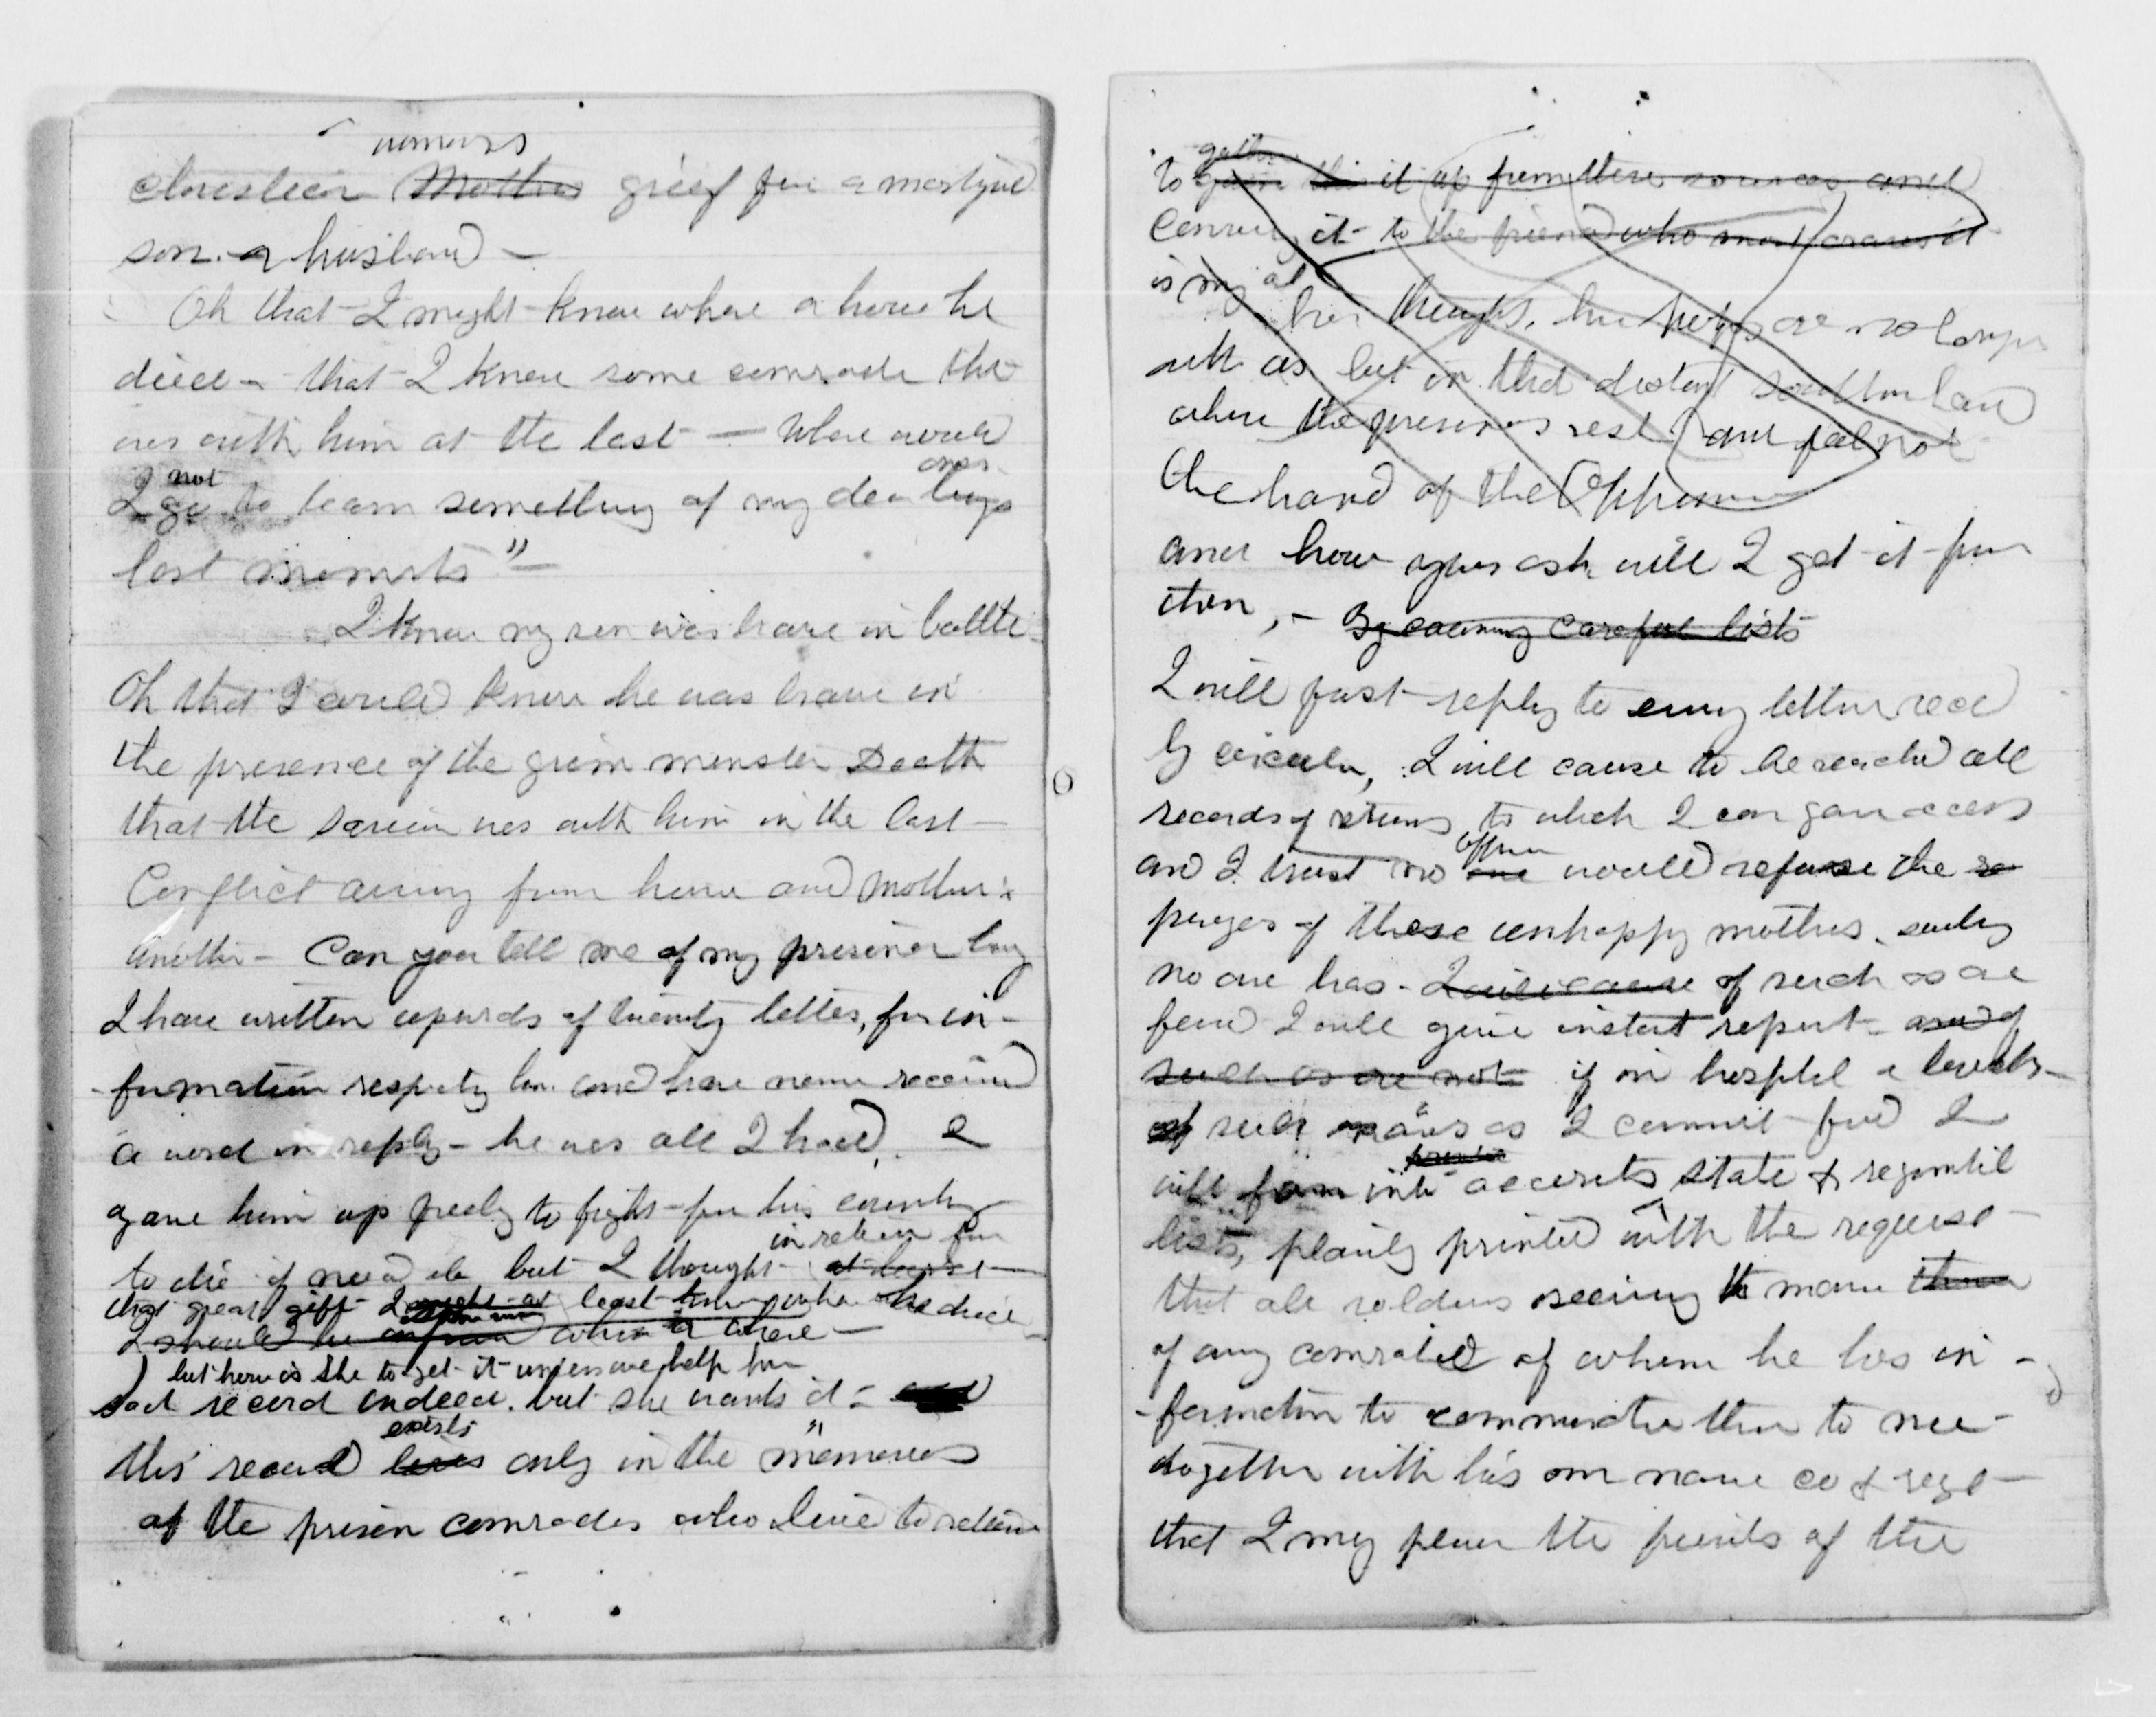 womans
christian Mothers grief for a martyred
son. or husband —
Oh that I might know where or how he
died — that I knew some comrade that
was with him at the last — Where would
not ones
I go to learn something of my dear boys
last moments" —
I know my son was brave in battle.
Oh that I could know he was brave in
the presence of the grim monster Death
that the Saviour was with him in the last
Conflict away from home and mother.
Another — Can you tell me of my prisoner boy
I have written upwards of twenty letters, for in-
-formation respectg him and have never received
a word in reply — he was all I had, I
gave him up freely to fight for his country
in return for
to die if need be but I thought at least
that great gift I might at least know when he died
I should be when or where —
but how is she to get it unless we help her
sad record indeed. but she wants it —
exists
this record lives only in the memories
of the prison comrades who lived to return
gather
to gain this it up from these sources and
Convey it to the friend who most craves it
is my
her thoughts, her hopes are no longer
with us but in that distant southern land
where the prisoners rest and feel not
the hand of the Oppressor
and how you ask will I get it from
them, — By causing careful lists
I will first reply to every letter recd
by circular, I will cause to be searched all
records of returns to which I can gain access
officer
and I trust no one would refuse the
prayers of these unhappy mothers. surely
no one has. I will cause of such as are
found I will give instant report. and of
such as are not if in hospital
of such names as I cannot find I
printed
will form into accurate state & regimtl
lists, plainly printed with the request
that all soldiers seeing the name
of any comrade of whom he has in-
-formation to communicate then to me
together with his own name co & regt
that I may place the friends of the